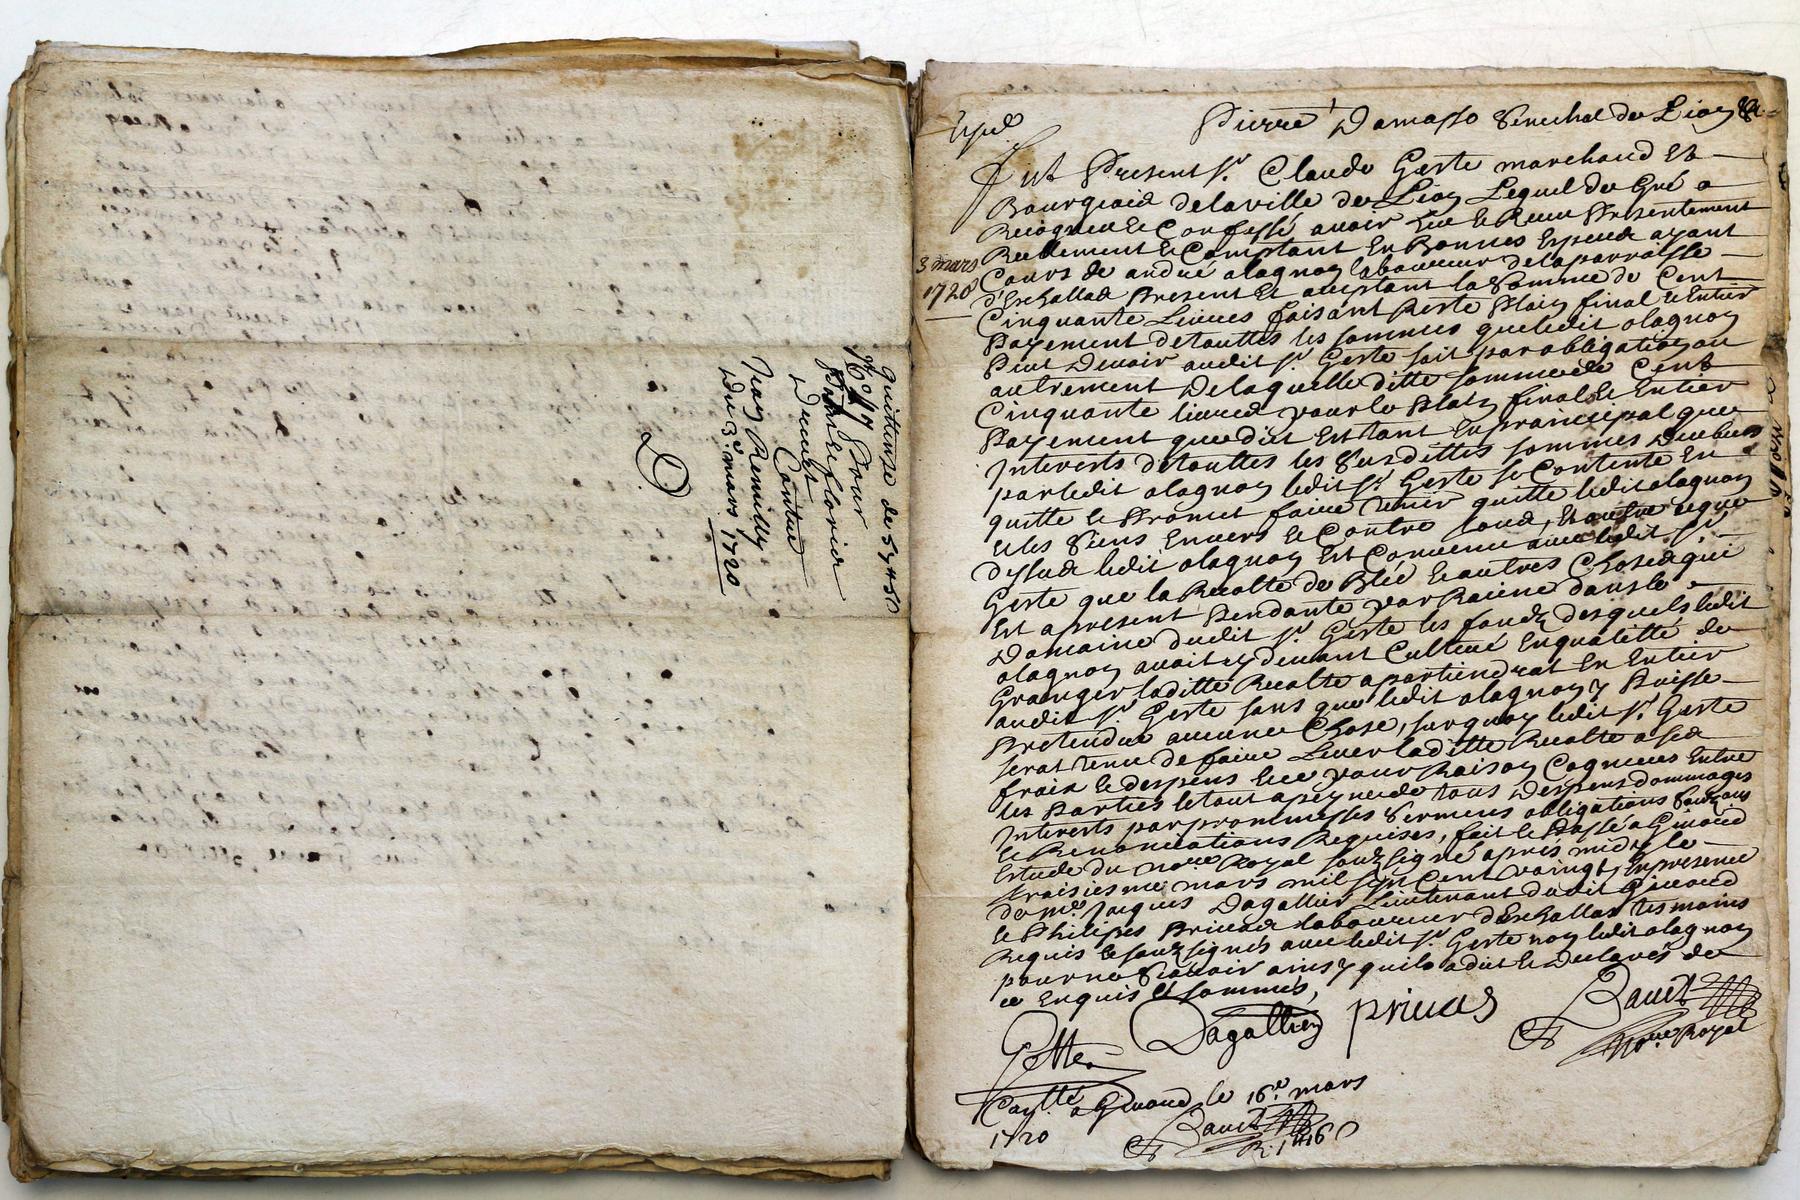 quittance de
pour
Du 3e mars 1720
D
Pierre Damasso Senechal de Lion &a.
3 mars
1720
Fut Present Sr. Claude Geste marchand Et
Bourgioid de la ville de Lion Lequel de Gré a
Recogneu Et Confessé avoir Eu Et Receu Presentement
Reellement Et Comptant En Bonnes Especes ayant
Cours de andré alagnon laboureur de la parroisse
d'Eschallad Present Et aceptant la Somme de Cent
Cinquante Livres faisant Reste Plain final Et Entier
Payement de touttes les sommes que ledit alagnon
Peut Devoir audit Sr. Geste soit par obligation ou
autrement De laquelle ditte somme de Cent
Cinquante livres pour le Plain final Et Entier
Payement que dit Est tant En principal que
Interests de touttes les Susdittes sommes Deubes
par ledit alagnon ledit Sr. Geste se Contente En
quitte Et Promet faire tenir quitte ledit alagnon
Et les Siens Envers Et Contre tous, Et
ledit alagnon Est Convenu avec ledit Sr.
Geste que la Recolte de Bléé Et autres Choses qui
Est apresent Pendante par Racine dans le
Domaine dudit Sr. Geste les fondz desquels ledit
alagnon avoit cy devant Cultivé En qualitté de
Granger laditte Recolte apartiendrat En Entier
audit Sr. Geste sans que ledit alagnon y Puisse
Pretendre aucune Chose, surquoy ledit Sr. Geste
serat tenu de faire Lever laditte Recolte a ses
frais Et despens Et ce pour Raison Cogneues Entre
les Parties le tout a peyne de tous Despens dommages
Interests par promesses Sermens obligations
Et Renonciations Requises, fait Et Passé a Givord
Estude du nore Royal souzsigné aprés midy le
troisiesme mars mil sept Cent vaingt, En presence
de me. Jacques Dagallier Lieutenant dudit Givord
Et Philipes Privad laboureur d'Eschallas tesmoins
Requis Et souzsignés avec ledit Sr. Geste non ledit alagnon
pour ne Scavoir ainsy quil a dit Et Declaré de
ce Enquis Et sommés,
Geste Dagallier privas
nore Royal
a Givord le 16e. mars
1720